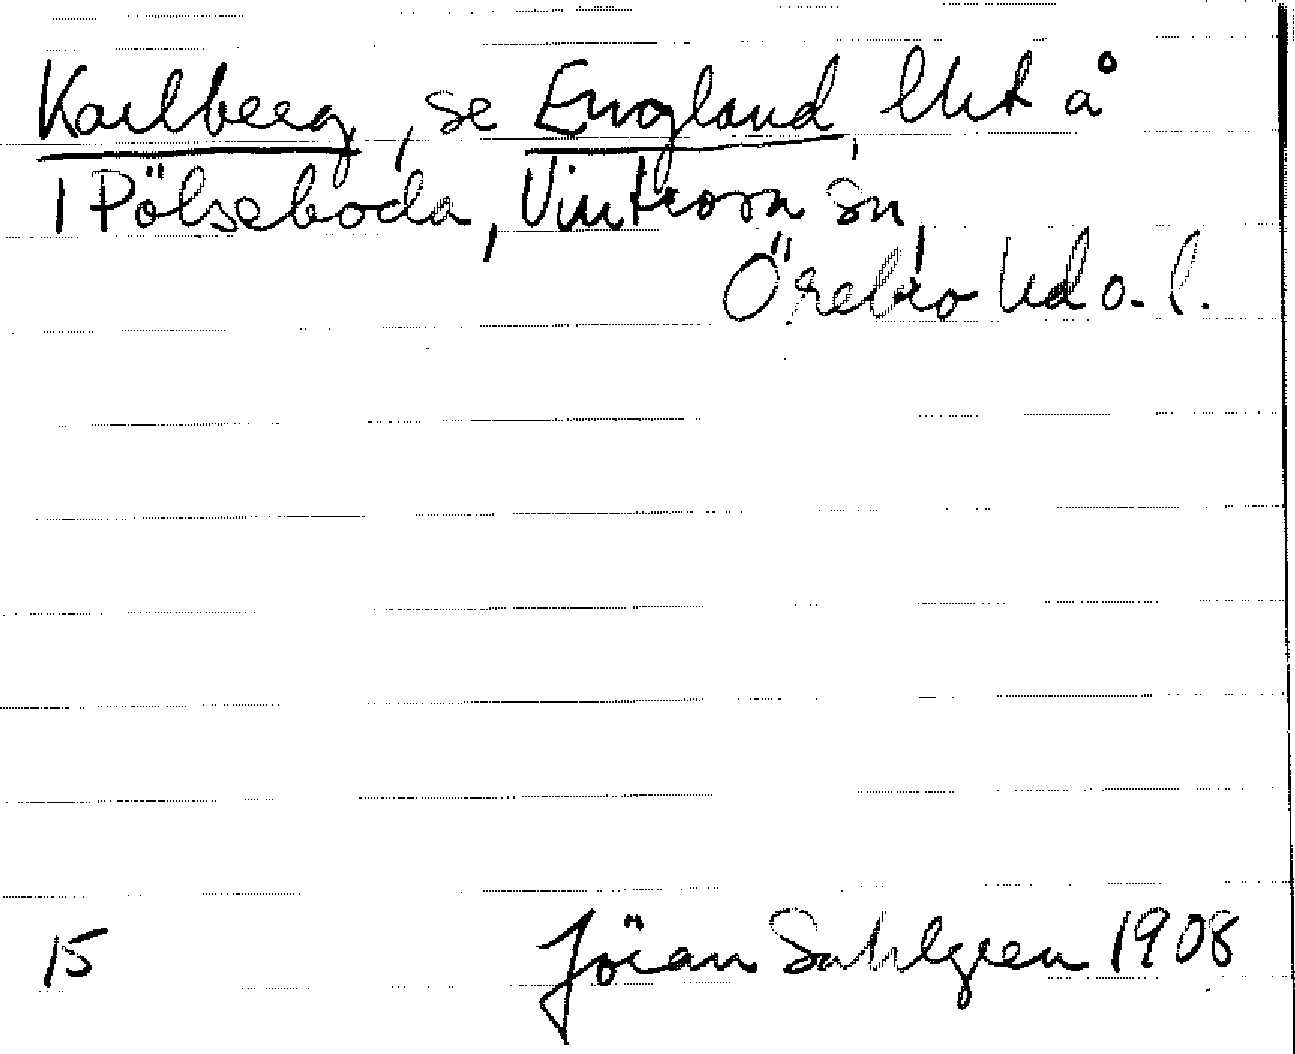 Karlberg, se England, lht å
1 Pölseboda, Vintrosa sn,
Örebro hd o. l.
15 Jöran Sahlgren 1908